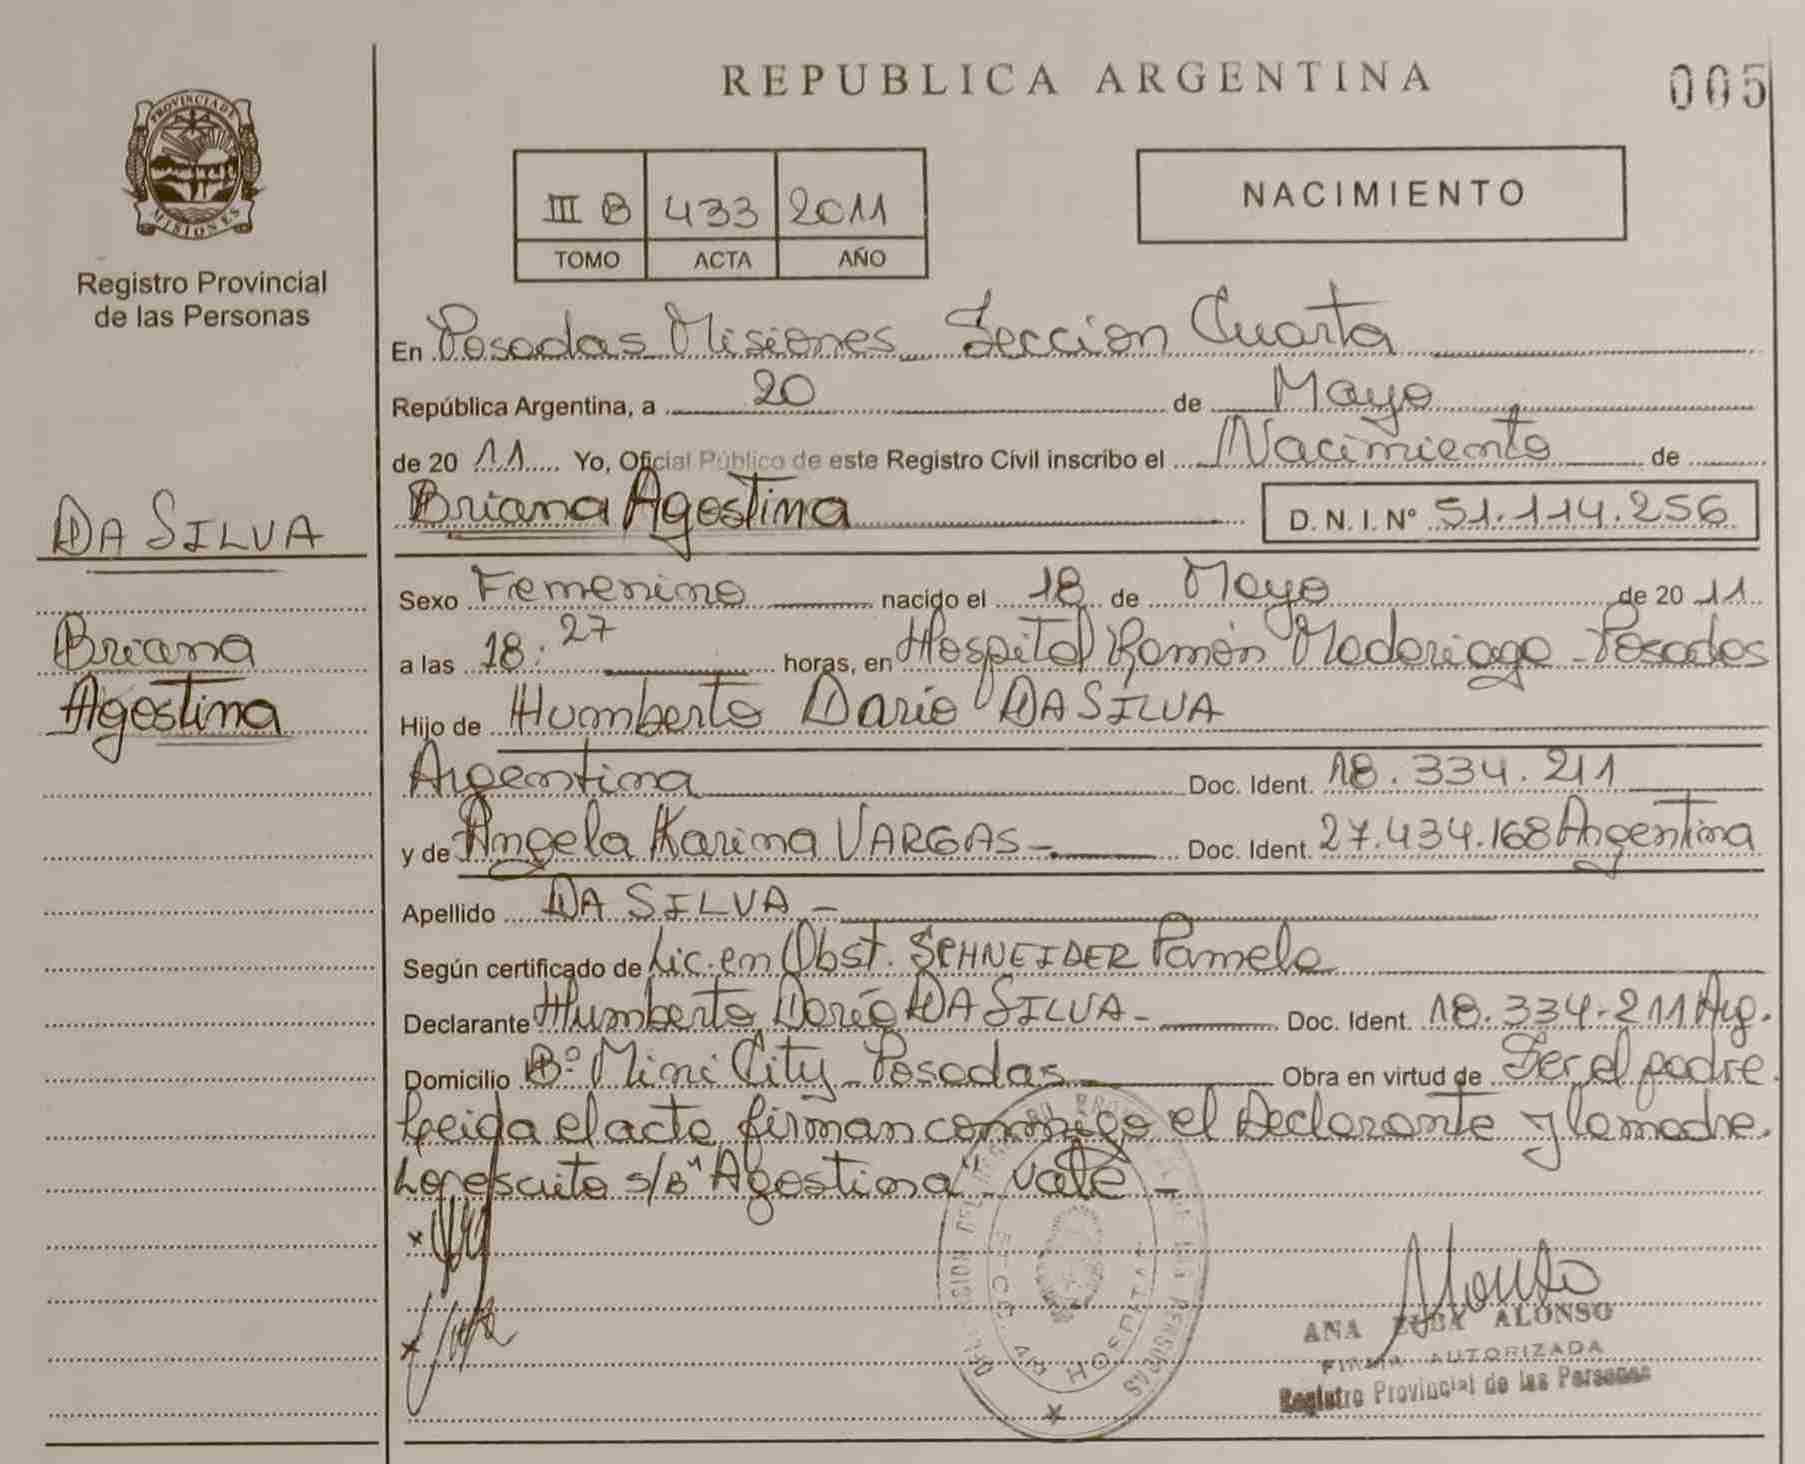 REPUBLICA ARGENTINA
005
PROVINCIA DE
MISIONES
Registro Provincial
de las Personas
III B 433 2011
TOMO ACTA AÑO
NACIMIENTO
En Posadas Misiones Seccion Cuarta
República Argentina, a 20 de Mayo
de 20 11 Yo, Oficial Público de este Registro Civil inscribo el Nacimiento de
Briana Agostina D. N. I. Nº 51.114.256
DA SILVA
Briana
Agostina
Sexo Femenino nacido el 18 de Mayo de 20 11
a las 18:27 horas, en Hospital Ramón Madariaga - Posadas
Hijo de Humberto Dario DA SILVA
Argentina Doc. Ident. 18.334.211
y de Angela Karina VARGAS - Doc. Ident. 27.434.168 Argentina
Apellido DA SILVA -
Según certificado de Lic. en Obst. SCHNEIDER Pamela
Declarante Humberto Darío DA SILVA - Doc. Ident. 18.334.211 Arg.
Domicilio Bº Mini City - Posadas Obra en virtud de Ser el padre.
Leida el acta firman conmigo el Declarante y la madre.
Lo rescrito s/B "Agostina" vale -
HOSPITAL
ANA ALONSO
FIRMA AUTORIZADA
Registro Provincial de las Personas